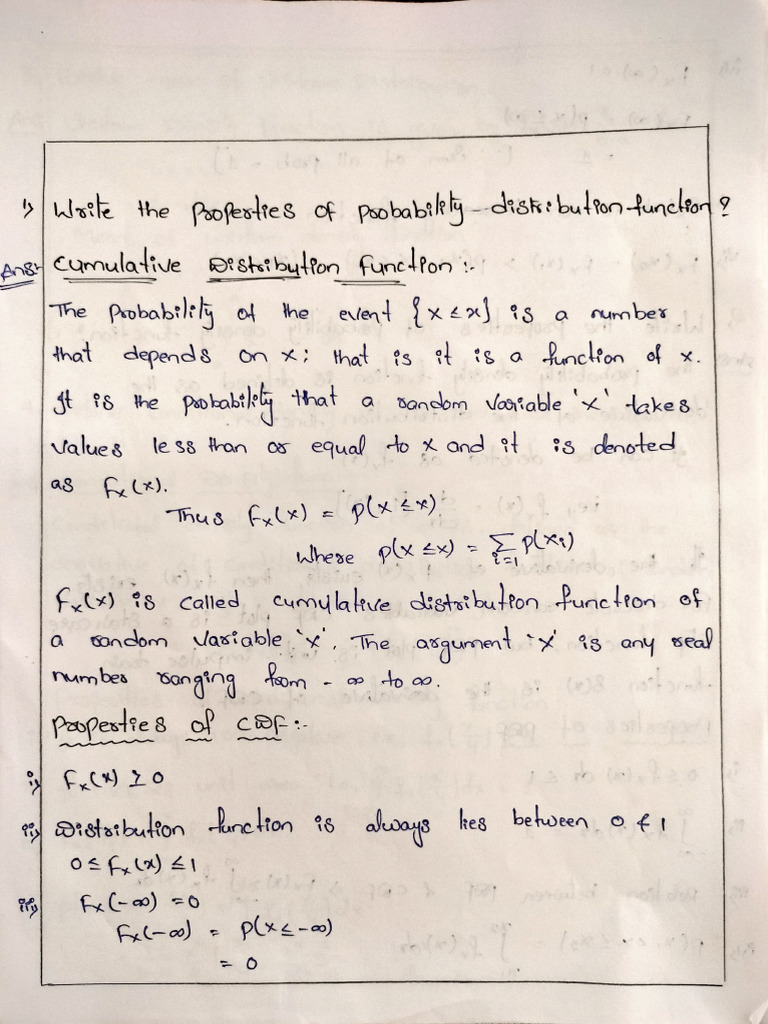 1) Write the Properties of probability distribution function?
Ans:- Cumulative Distribution Function :-
The Probability of the event {X ≤ x} is a number
that depends on x; that is it is a function of x.
It is the probability that a random variable 'x' takes
values less than or equal to x and it is denoted
as Fx(x).
Thus Fx(x) = P(X ≤ x)
Where P(X ≤ x) = ∑ i=1 P(xi)
Fx(x) is called cumulative distribution function of
a random variable 'x'. The argument 'x' is any real
number ranging from -∞ to ∞.
Properties of CDF:-
i) Fx(x) ≥ 0
ii) Distribution function is always lies between 0 & 1
0 ≤ Fx(x) ≤ 1
iii) Fx(-∞) = 0
Fx(-∞) = P(X ≤ -∞)
= 0